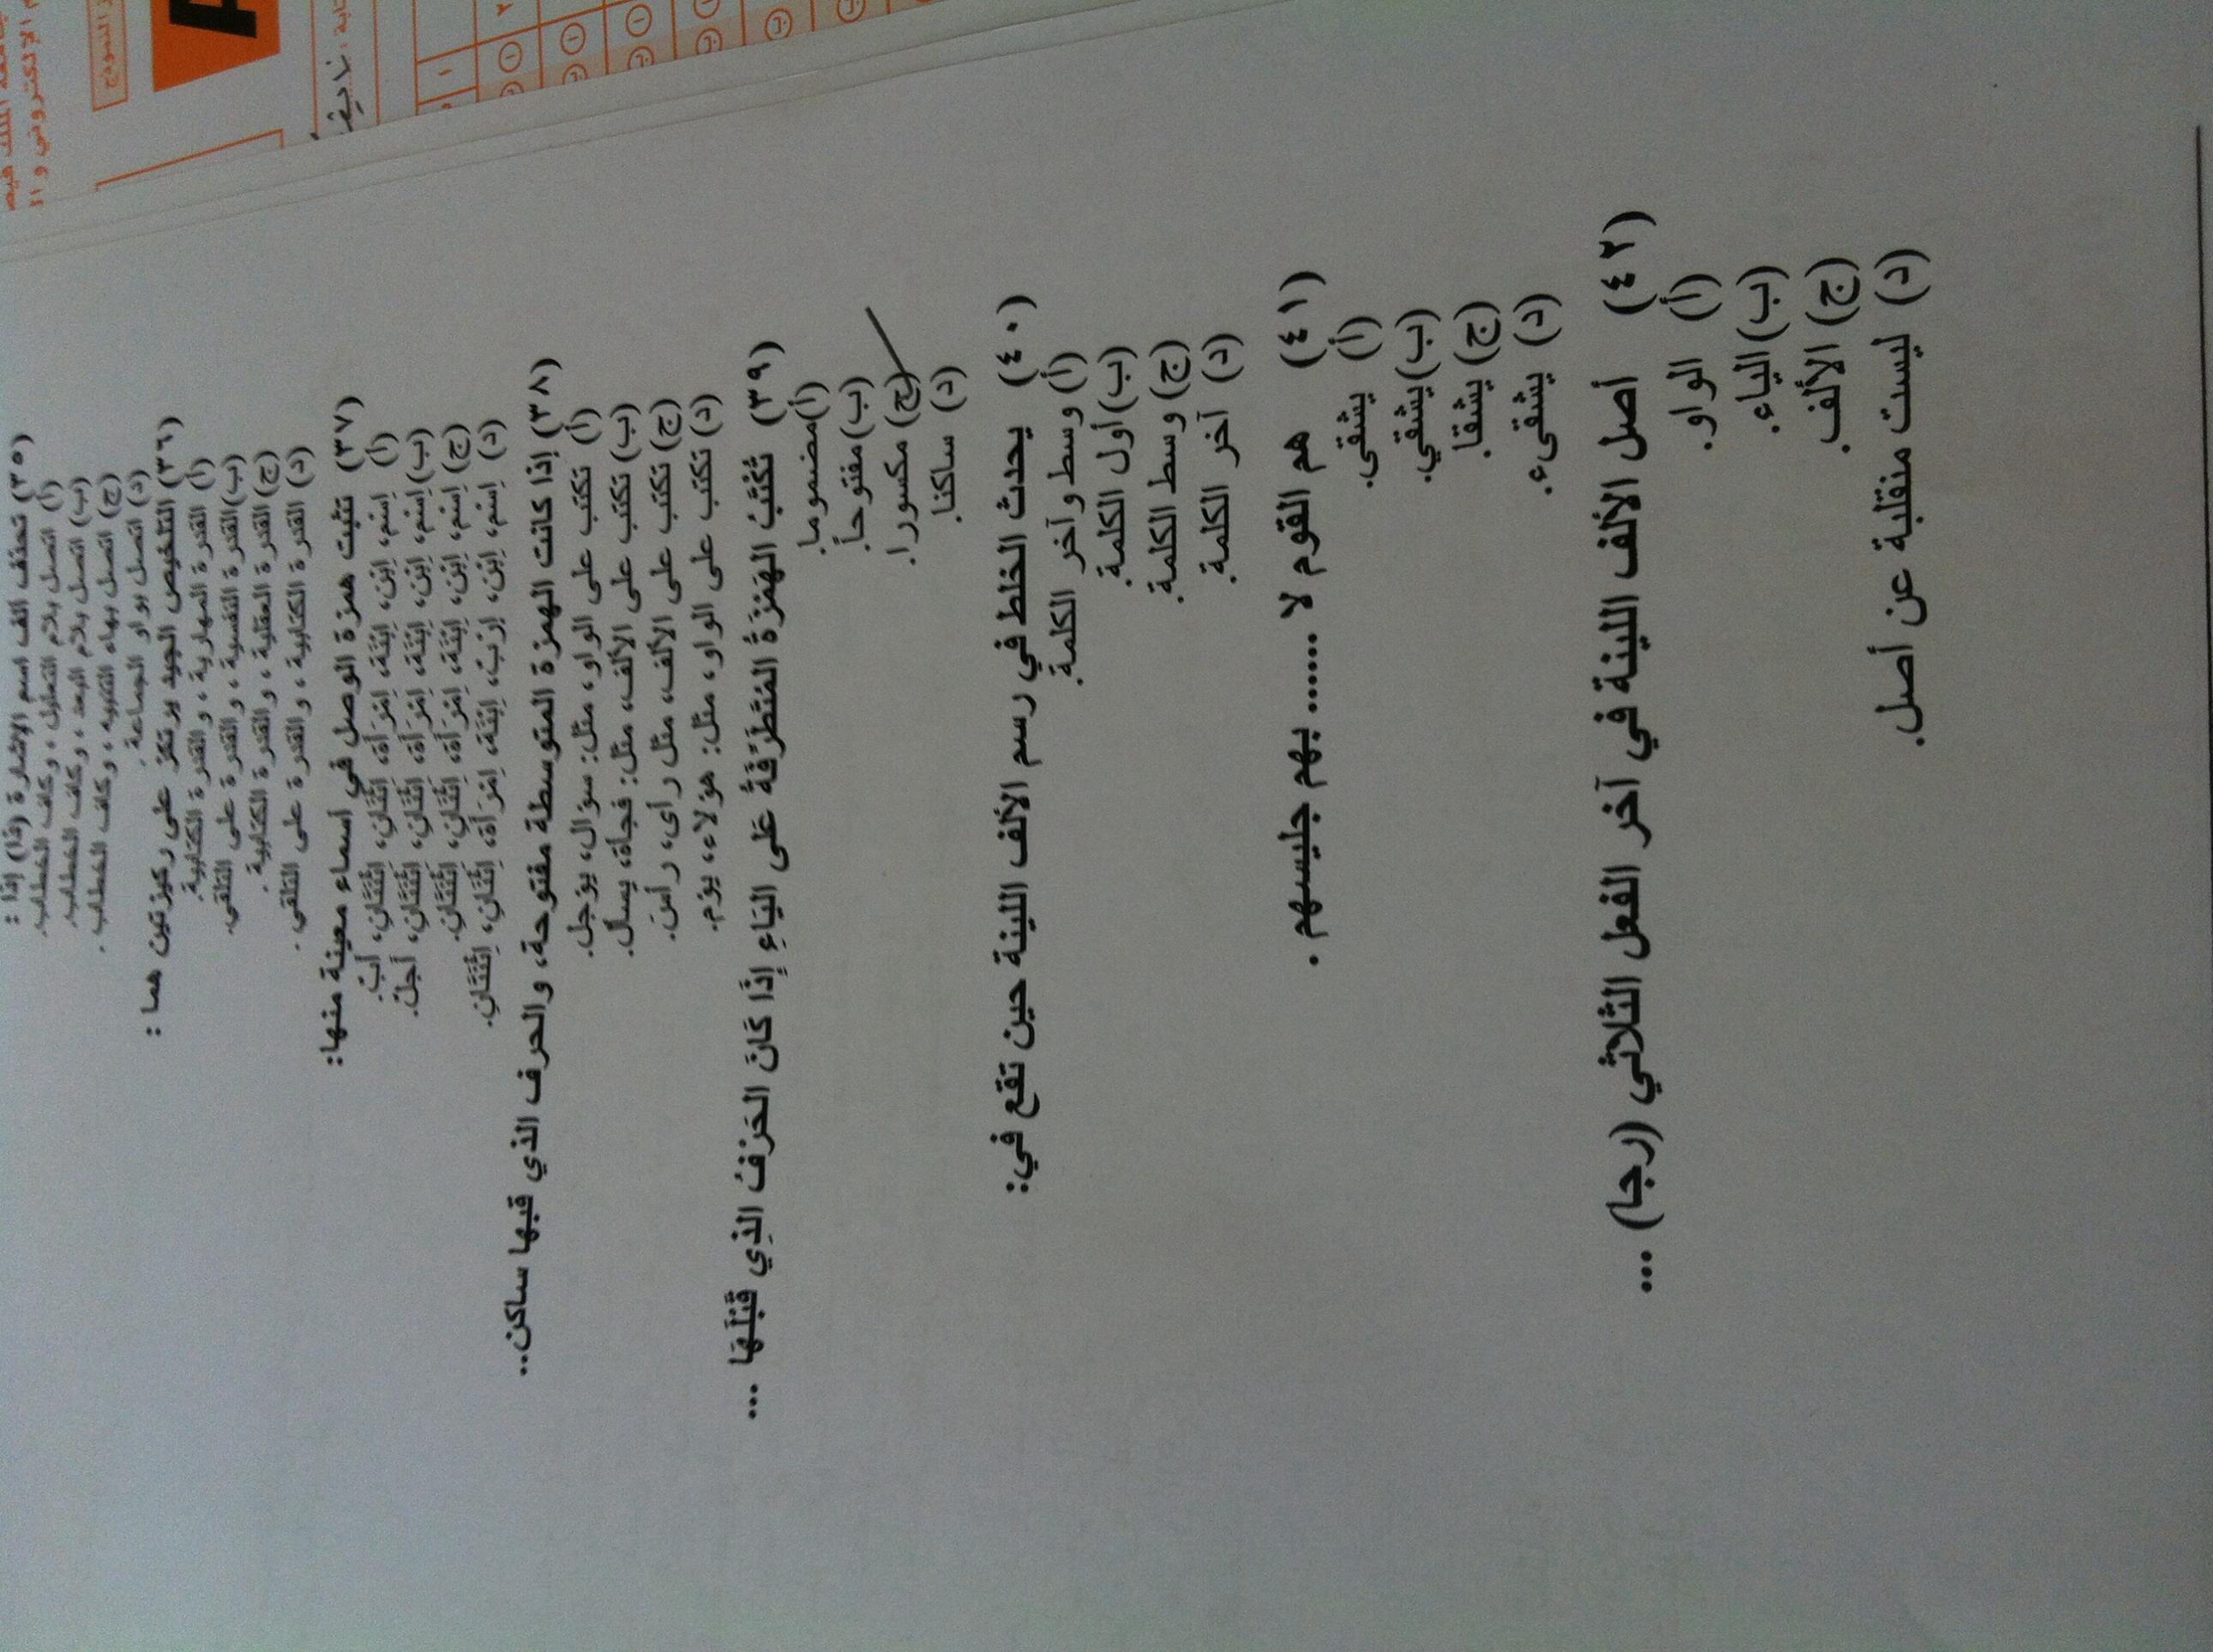 (٣٥) تحذف الف اسم الإشارة (ذا) إذا :
(أ) اتصل بلام التعليل ، وكاف الخطاب.
(ب) اتصل بلام البعد ، وكاف الخطاب.
(ج) اتصل بهاء التنبيه ، وكاف الخطاب .
(د) اتصل بواو الجماعة .
(٣٦) التلخيص الجيد يرتكز على ركيزتين هما :
(أ) القدرة المهارية ، والقدرة الكتابية.
(ب) القدرة النفسية ، والقدرة على التلقي.
(ج) القدرة العقلية ، والقدرة الكتابية .
(د) القدرة الكتابية ، والقدرة على التلقي .
(٣٧) تثبت همزة الوصل في أسماء معينة منها:
(أ) اِسْم، اِبْن، اِبْنَة، اِمْرَأة، اِثْنَانِ، اِثْنَتَانِ، أبْ.
(ب) اِسْم، اِبْن، اِبْنَة، اِمْرَأة، اِثْنَانِ، اِثْنَتَانِ، أجلْ.
(ج) اِسْم، اِبْن، اِبْنَة، اِمْرَأة، اِثْنَانِ، اِثْنَتَانِ.
(د) اِسْم، اِبْن، اِرْب، اِبْنَة، اِمْرَأة، اِثْنَانِ، اِثْنَتَانِ.
(٣٨) إذا كانت الهمزة المتوسطة مفتوحة، والحرف الذي قبها ساكن..
(أ) تكتب على الواو، مثل: سؤال، يؤجل.
(ب) تكتب على الألف، مثل: فجأة، يسأل.
(ج) تكتب على الألف، مثل رأى، رأسَ.
(د) تكتب على الواو، مثل: هؤلاء، يؤم.
(٣٩) تُكْتَبُ الهَمْزَةُ المُتَطَرِّفَةُ عَلى اليَاءِ إِذَا كَانَ الحَرْفُ الذِي قَبْلَهَا ...
(أ) مضموما.
(ب) مفتوحاً.
(ج) مكسورا.
(د) ساكنا.
(٤٠) يحدث الخلط في رسم الألف اللينة حين تقع في:
(أ) وسط وآخر الكلمة.
(ب) أول الكلمة.
(ج) وسط الكلمة.
(د) آخر الكلمة.
(٤١) هم القوم لا ....... بهم جليسهم .
(أ) يشقى.
(ب) يشقي.
(ج) يشقا.
(د) يشقىء.
(٤٢) أصل الألف اللينة في آخر الفعل الثلاثي (رجا) ...
(أ) الواو.
(ب) الياء.
(ج) الألف.
(د) ليست منقلبة عن أصل.